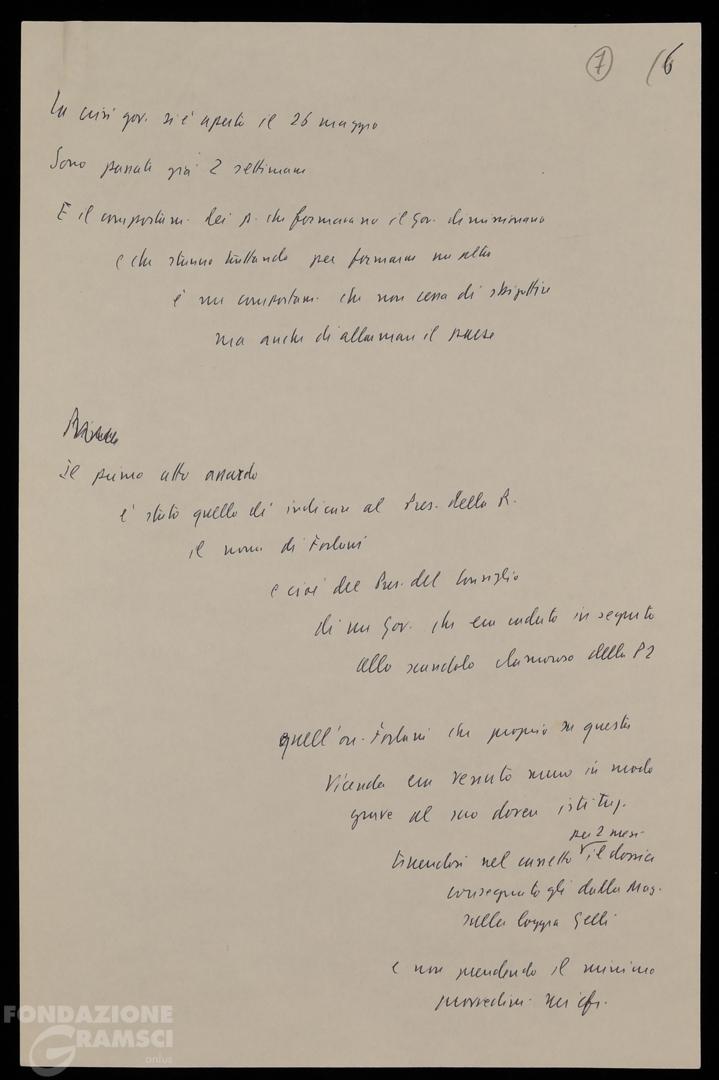 7 16
La crisi gov. si è aperta il 26 maggio
Sono passate già 2 settimane
E il comportam. dei p. che formavano il gov. dimissionario
e che stanno trattando per formarne un altro
è un comportam. che non cessa di sbigottire
ma anche di allarmare il paese
Il primo atto assurdo
è stato quello di indicare al Pres. della R.
il nome di Forlani
e cioè del Pres. del Consiglio
di un Gov. che era caduto in seguito
allo scandalo clamoroso della P2
quell'on. Forlani che proprio su questa
vicenda era venuto meno in modo
grave al suo dovere istituz.
per 2 mesi
tenendosi nel cassetto il dossier
consegnatogli dalla Mag.
sulla loggia Gelli
e non prendendo il minimo
provvedim.
FONDAZIONE
GRAMSCI
onlus